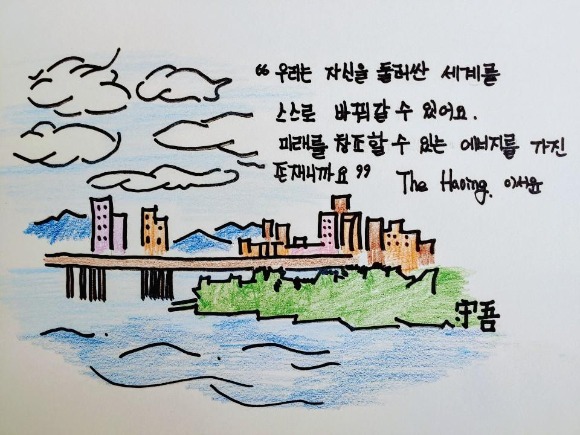 “ 우리는 자신을 둘러싼 세계를
스스로 바꿔갈 수 있어요.
미래를 창조할 수 있는 에너지를 가진
존재니까요 ” The Having. 이서윤
守吾